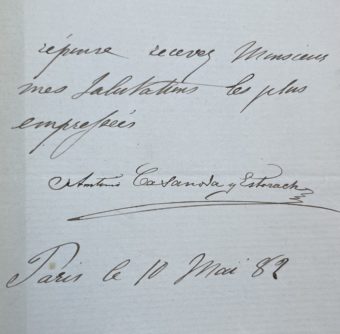 réponse recevez Monsieur
mes salutations les plus
empressées
Antonio Casanova y Estorach
Paris le 10 Mai 82